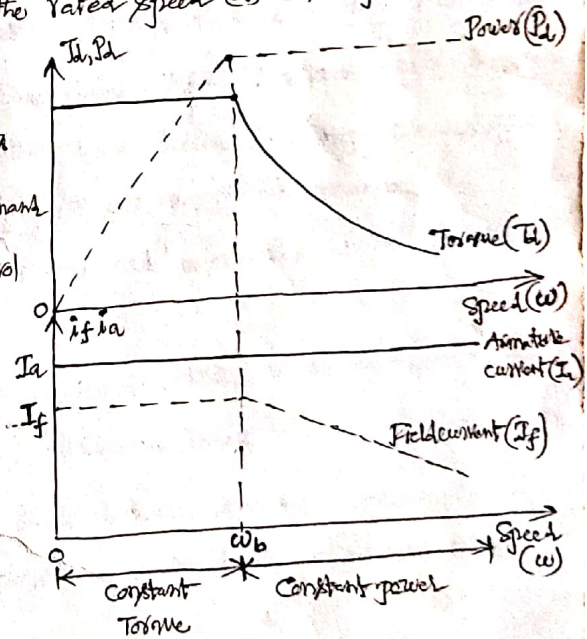 the rated speed
Td, Pd
Power (Pd)
mand
Torque (Td)
0
Speed (ω)
if ia
Ia
Armature
current (Ia)
If
Field current (If)
0
ωb
Speed
(ω)
Constant
Torque
Constant power